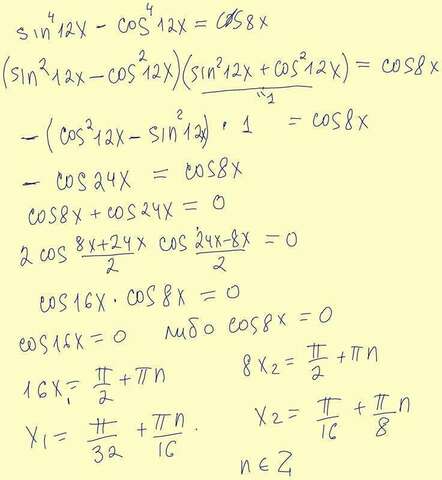 sin⁴12x − cos⁴12x = cos8x
(sin²12x − cos²12x)(sin²12x + cos²12x) = cos8x
"1
− (cos²12x − sin²12x) · 1 = cos8x
− cos24x = cos8x
cos8x + cos24x = 0
2 cos (8x+24x)/2 cos (24x−8x)/2 = 0
cos16x · cos8x = 0
cos16x = 0 либо cos8x = 0
16x₁ = π/2 + πn
8x₂ = π/2 + πn
x₁ = π/32 + πn/16.
x₂ = π/16 + π/8 n
n ∈ Z